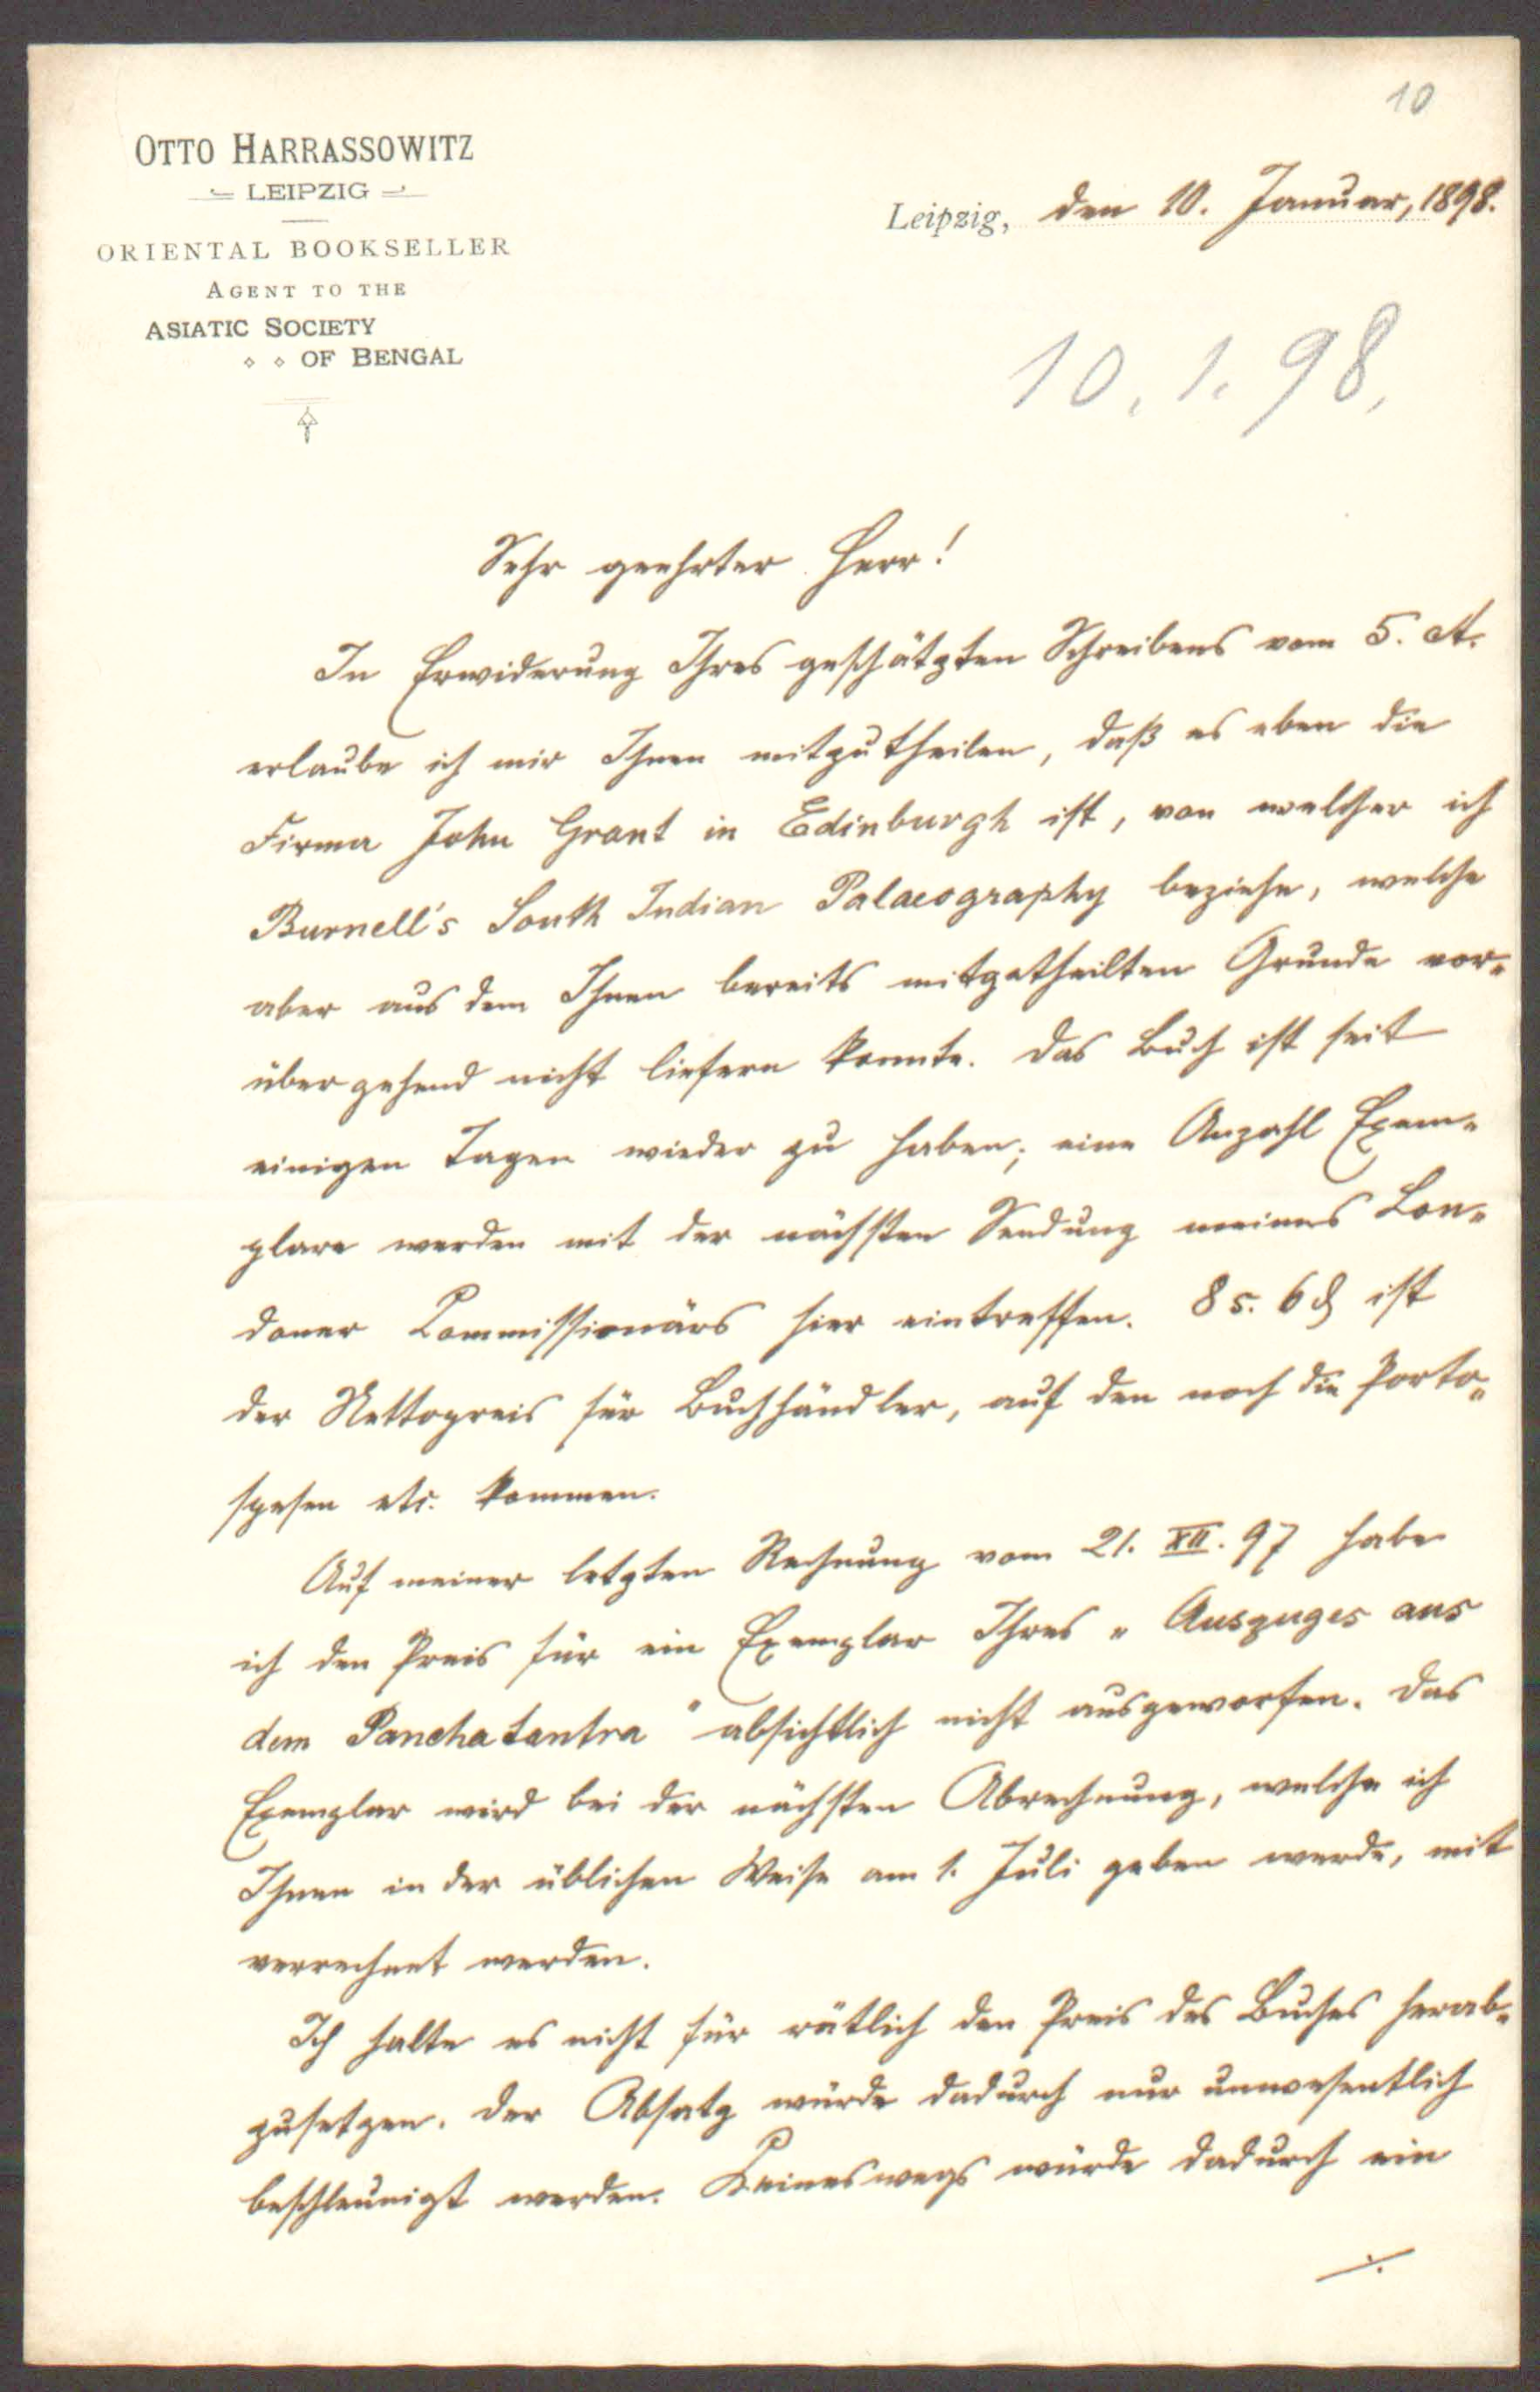 10
OTTO HARRASSOWITZ
LEIPZIG
ORIENTAL BOOKSELLER
AGENT TO THE
ASIATIC SOCIETY
OF BENGAL
Leipzig, den 10. Januar, 1898.
10. 1. 98.
Sehr geehrter Herr!
In Erwiderung Ihres geschätzten Schreibens vom 5. ct.
erlaube ich mir Ihnen mitzutheilen, daß es eben die
Firma John Grant in Edinburgh ist, von welcher ich
Burnell's South Indian Palaeography beziehe, welche
aber aus dem Ihnen bereits mitgetheilten Grunde vor-
übergehend nicht liefern konnte. Das Buch ist seit
einigen Tagen wieder zu haben; eine Anzahl Exem-
plare werden mit der nächsten Sendung meines Lon-
doner Commissionärs hier eintreffen. 8 s. 6 d ist
der Nettopreis für Buchhändler, auf den noch die Porto-
spesen etc. kommen.
Auf meiner letzten Rechnung vom 21. XII. 97 habe
ich den Preis für ein Exemplar Ihres „Auszuges aus
dem Panchatantra" absichtlich nicht ausgeworfen. Das
Exemplar wird bei der nächsten Abrechnung, welche ich
Ihnen in der üblichen Weise am 1. Juli geben werde, mit
verrechnet werden.
Ich halte es nicht für rätlich den Preis des Buches herab-
zusetzen. Der Absatz würde dadurch nur unwesentlich
beschleunigt werden. Keineswegs würde dadurch ein
./.